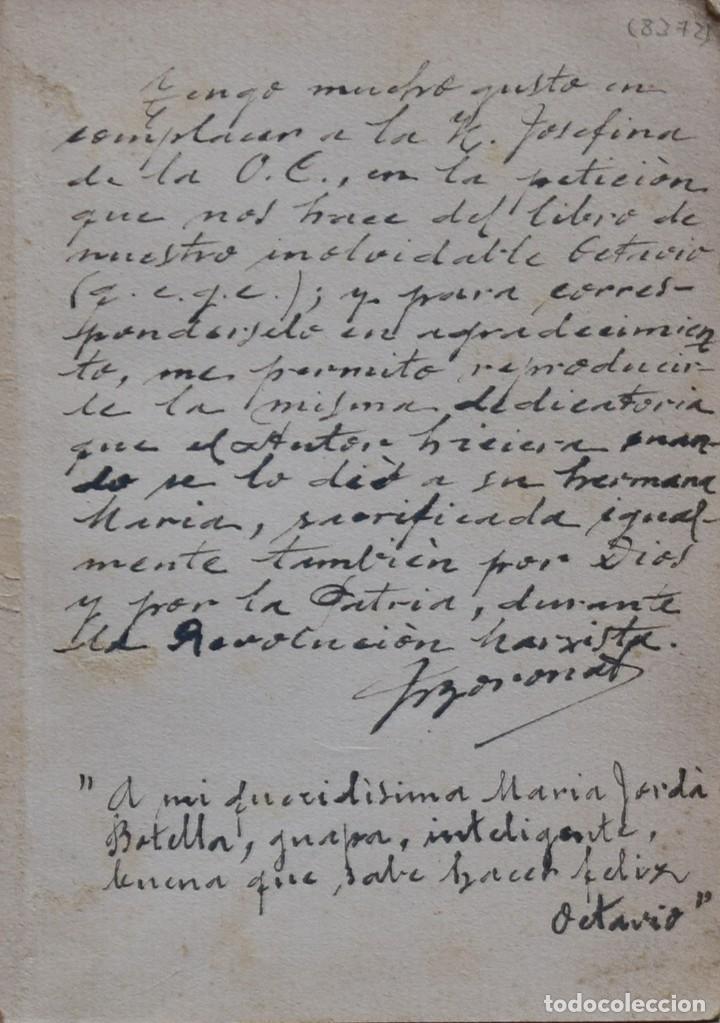 (8372)
Tengo mucho gusto en
complacer a la M. Josefina
de la O. C., en la petición
que nos hace del libro de
nuestro inolvidable Octavio
(q. e. g. e.); y para corres-
pondérselo en agradecimien-
to, me permito reproducir-
le la misma dedicatoria
que el Autor hiciera cuan-
do se lo diò a su hermana
Maria, sacrificada igual-
mente tambièn por Dios
y por la Patria, durante
la Revoluciòn Marxista.
"A mi queridìsima Maria Jordà
Botella, guapa, inteligente,
buena que sabe hacer feliz
Octavio"
todocoleccion